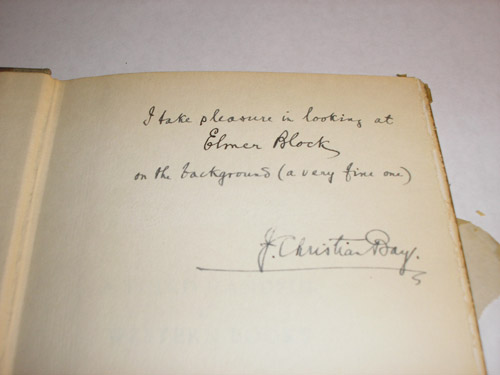 I take pleasure in looking at
Elmer Block
on the background (a very fine one)
J. Christian Bay.